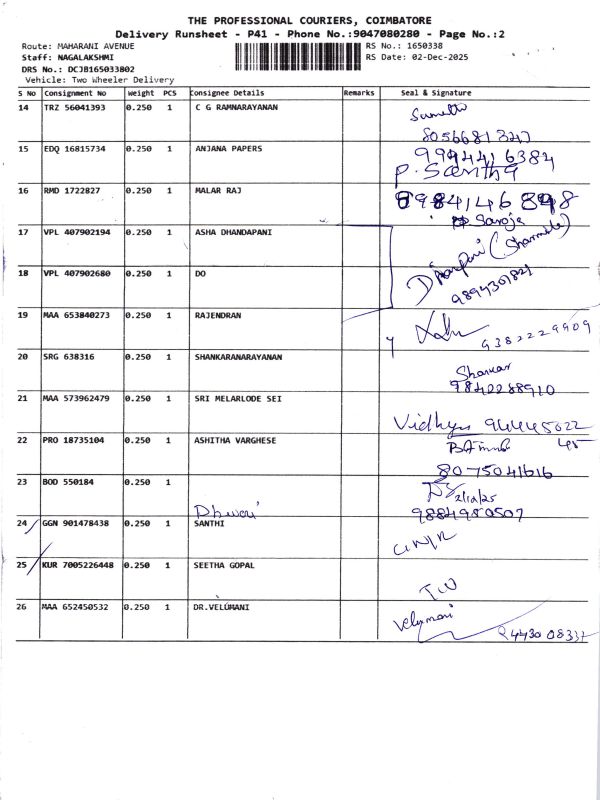 THE PROFESSIONAL COURIERS, COIMBATORE
Delivery Runsheet - P41 - Phone No.:9047080280 - Page No.:2
Route: MAHARANI AVENUE RS No.: 1650338
Staff: NAGALAKSHMI RS Date: 02-Dec-2025
DRS No.: DCJB165033802
Vehicle: Two Wheeler Delivery
S No Consignment No Weight PCS Consignee Details Remarks Seal & Signature
14 TRZ 56041393 0.250 1 C G RAMNARAYANAN
8056681347
15 EDQ 16815734 0.250 1 ANJANA PAPERS 9994416384
P. Santha
16 RMD 1722827 0.250 1 MALAR RAJ
Saroja
17 VPL 407902194 0.250 1 ASHA DHANDAPANI
(Sharmila)
18 VPL 407902680 0.250 1 DO
19 MAA 653840273 0.250 1 RAJENDRAN 9382229909
20 SRG 638316 0.250 1 SHANKARANARAYANAN
Shankar
9842288910
21 MAA 573962479 0.250 1 SRI MELARLODE SEI
Vidhya 94445022
45
22 PRO 18735104 0.250 1 ASHITHA VARGHESE
8075041616
23 BOD 550184 0.250 1
2/12/25
9884980507
24 GGN 901478438 0.250 1 SANTHI
25 KUR 7005226448 0.250 1 SEETHA GOPAL
26 MAA 652450532 0.250 1 DR.VELUMANI
Velumani 9443008337